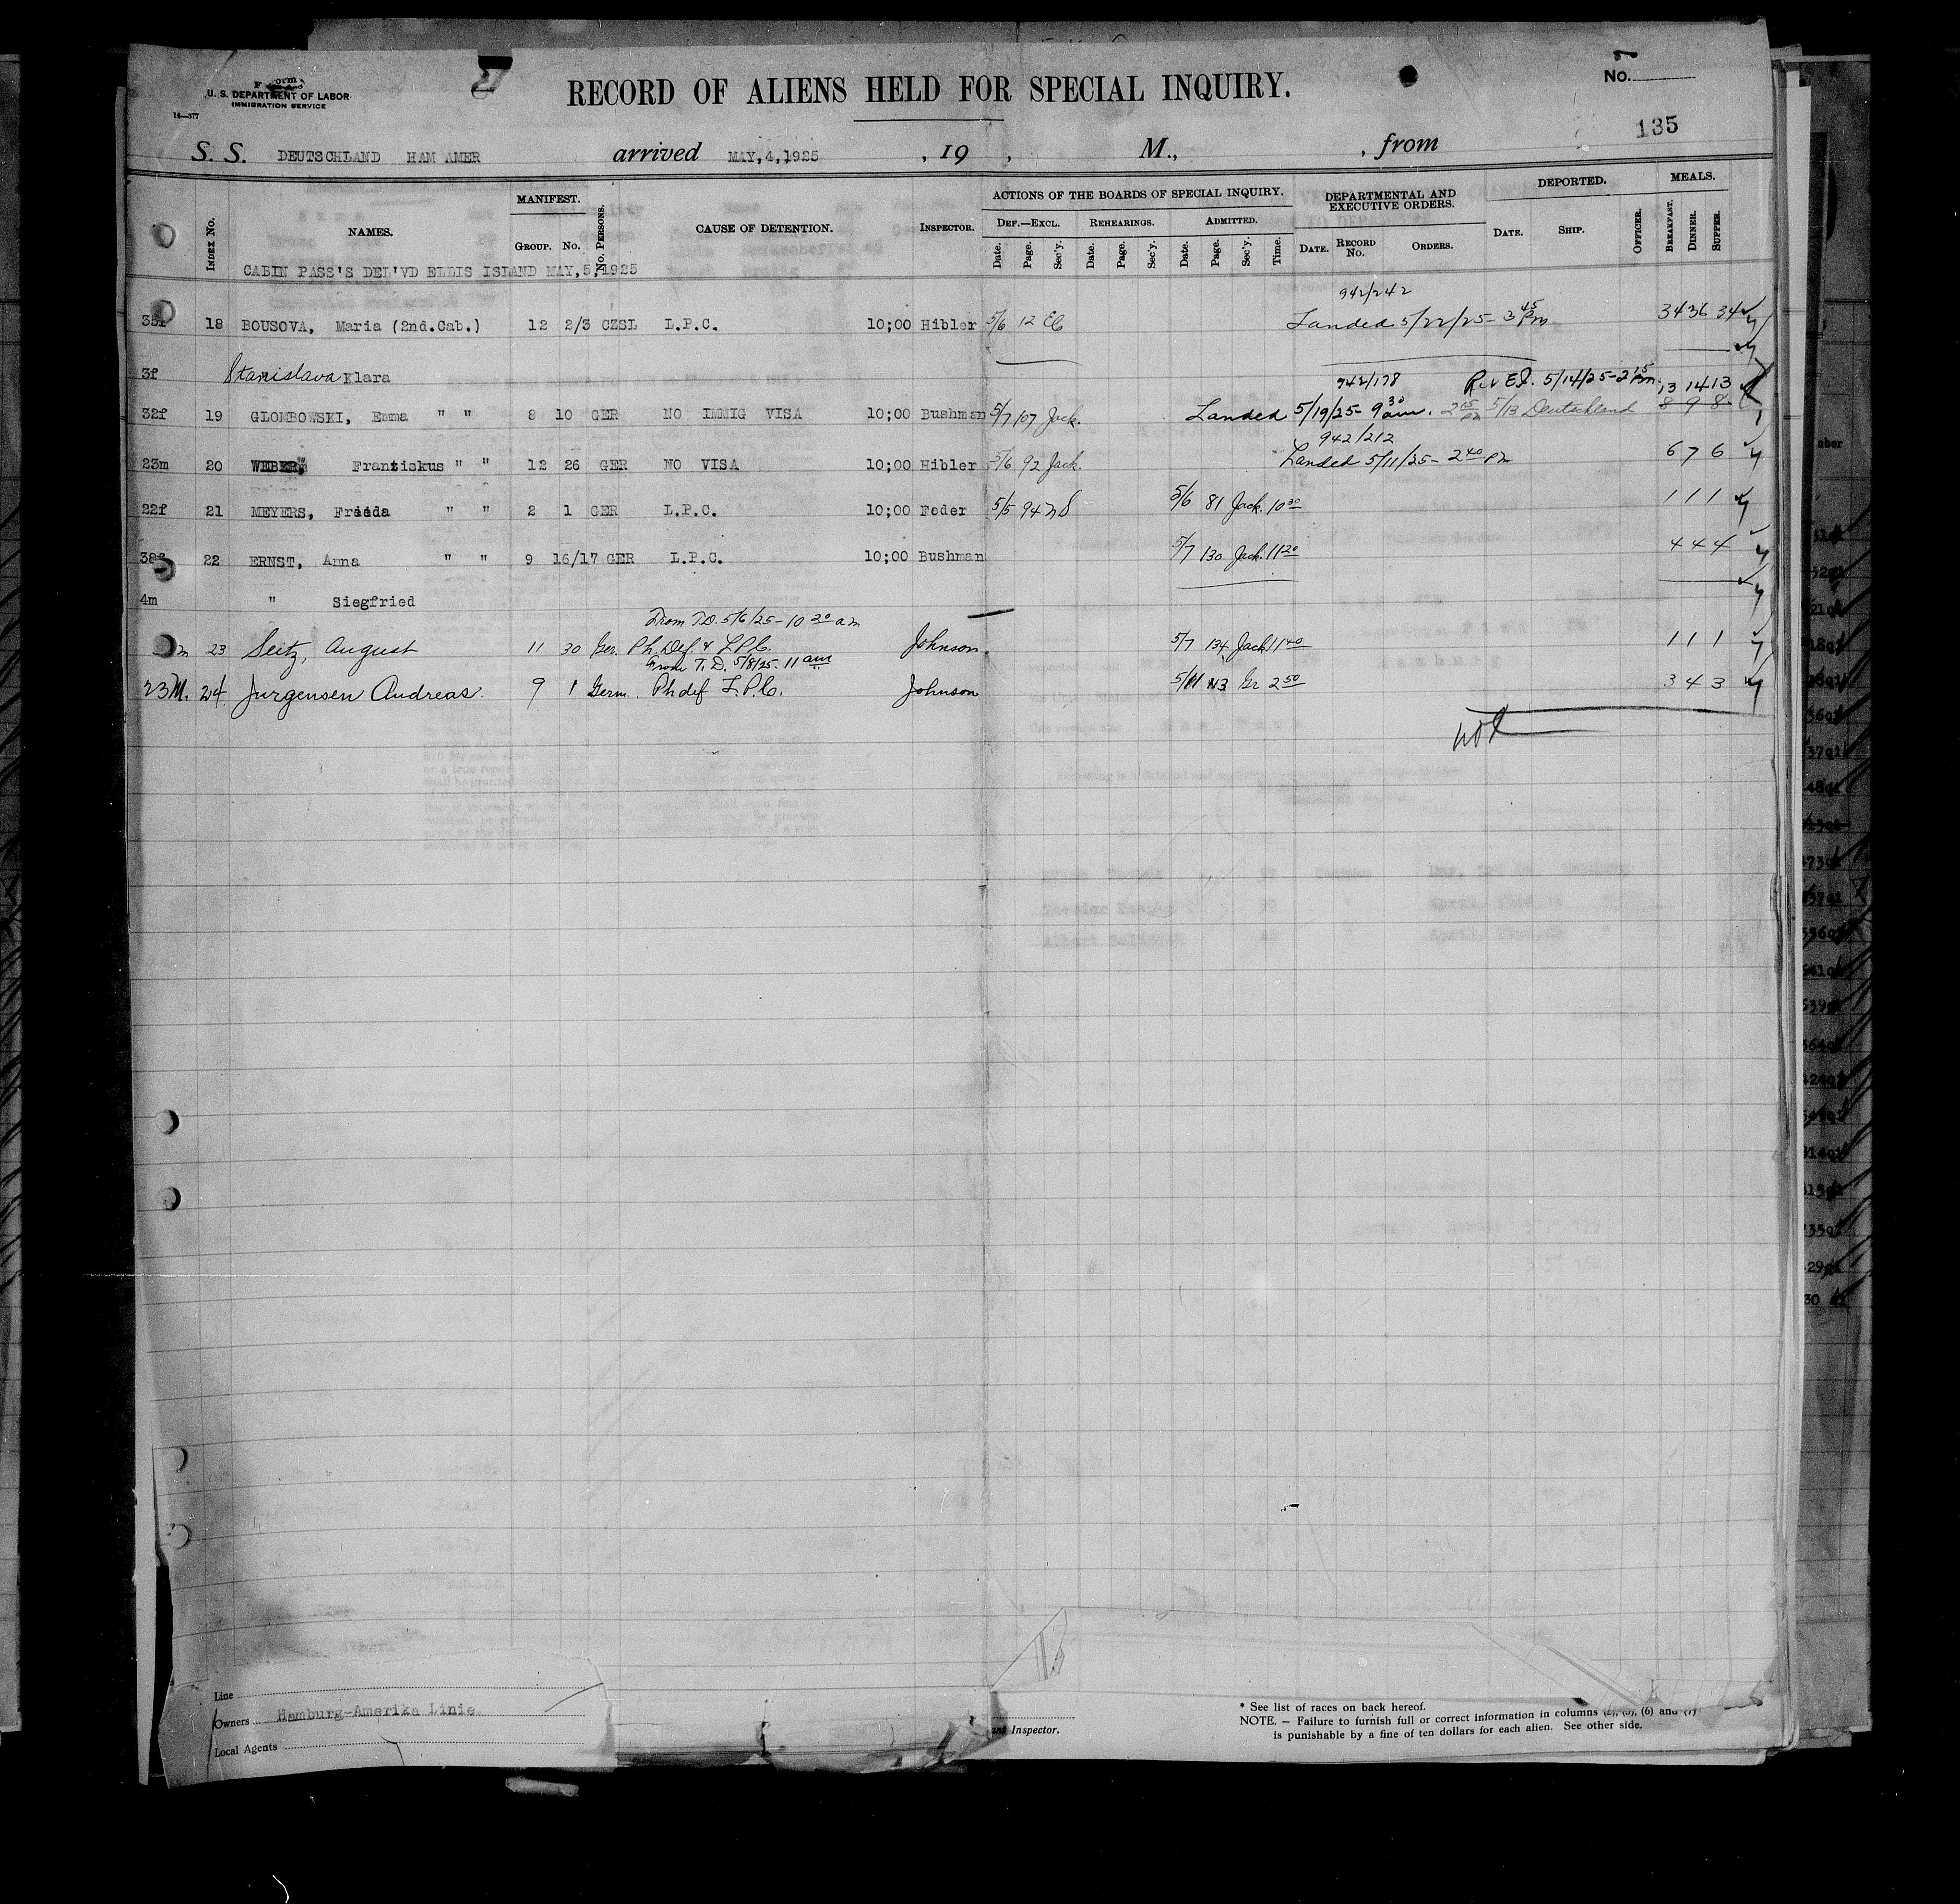 Form
U. S. DEPARTMENT OF LABOR
IMMIGRATION SERVICE
14—377
RECORD OF ALIENS HELD FOR SPECIAL INQUIRY.
No. 7
135
S. S. DEUTSCHLAND HAM AMER arrived MAY,4,1925 , 19 , M., , from
INDEX No. NAMES. MANIFEST. GROUP. No. No. PERSONS. CAUSE OF DETENTION. INSPECTOR. ACTIONS OF THE BOARDS OF SPECIAL INQUIRY. DEF.—EXCL. Date. Page. Sec'y. REHEARINGS. Date. Page. Sec'y. ADMITTED. Date. Page. Sec'y. Time. DEPARTMENTAL AND EXECUTIVE ORDERS. DATE. RECORD No. ORDERS. DEPORTED. DATE. SHIP. OFFICER. MEALS. BREAKFAST. DINNER. SUPPER.
CABIN PASS'S DEL'VD ELLIS ISLAND MAY,5,1925
942/242
35f 18 BOUSOVA, Maria (2nd.Cab.) 12 2/3 CZSL L.P.C. 10;00 Hibler 5/6 12 Landed 5/22/25- 3 45 Pm 34 36 34
3f Stanislava Klara
942/178 5/14/25-2 15 Pm. 13 14 13
32f 19 GLOMBOWSKI, Emma " " 8 10 GER NO IMMIG VISA 10;00 Bushman 5/7 107 Jack. Landed 5/19/25- 9 30 am. 2 15 5/13 Deutschland 8 9 8
942/212
23m 20 WEBER, Franziskus " " 12 26 GER NO VISA 10;00 Hibler 5/6 92 Jack. Landed 5/11/25- 2 40 Pm 6 7 6
22f 21 MEYERS, Frieda " " 2 1 GER L.P.C. 10;00 Feder 5/5 94 5/6 81 Jack. 10 30 1 1 1
22 ERNST, Anna " " 9 16/17 GER L.P.C. 10;00 Bushman 5/7 130 Jack. 11 20 4 4 4
4m " Siegfried
From T.D. 5/6/25- 10 30 am
23 Seitz, August 11 30 Ger. Ph. Def. & L.P.C. Johnson. 5/7 134 Jack 11 40 1 1 1
From T. D. 5/8/25. 11 am
23 M. 24 Jurgensen Andreas. 9 1 Germ. Ph def L.P.C. Johnson 5/11 Gr 2 50 3 4 3
Line
Owners Hamburg-Amerika Linie
Local Agents
Inspector.
* See list of races on back hereof.
NOTE. — Failure to furnish full or correct information in columns (6) and (7)
is punishable by a fine of ten dollars for each alien. See other side.